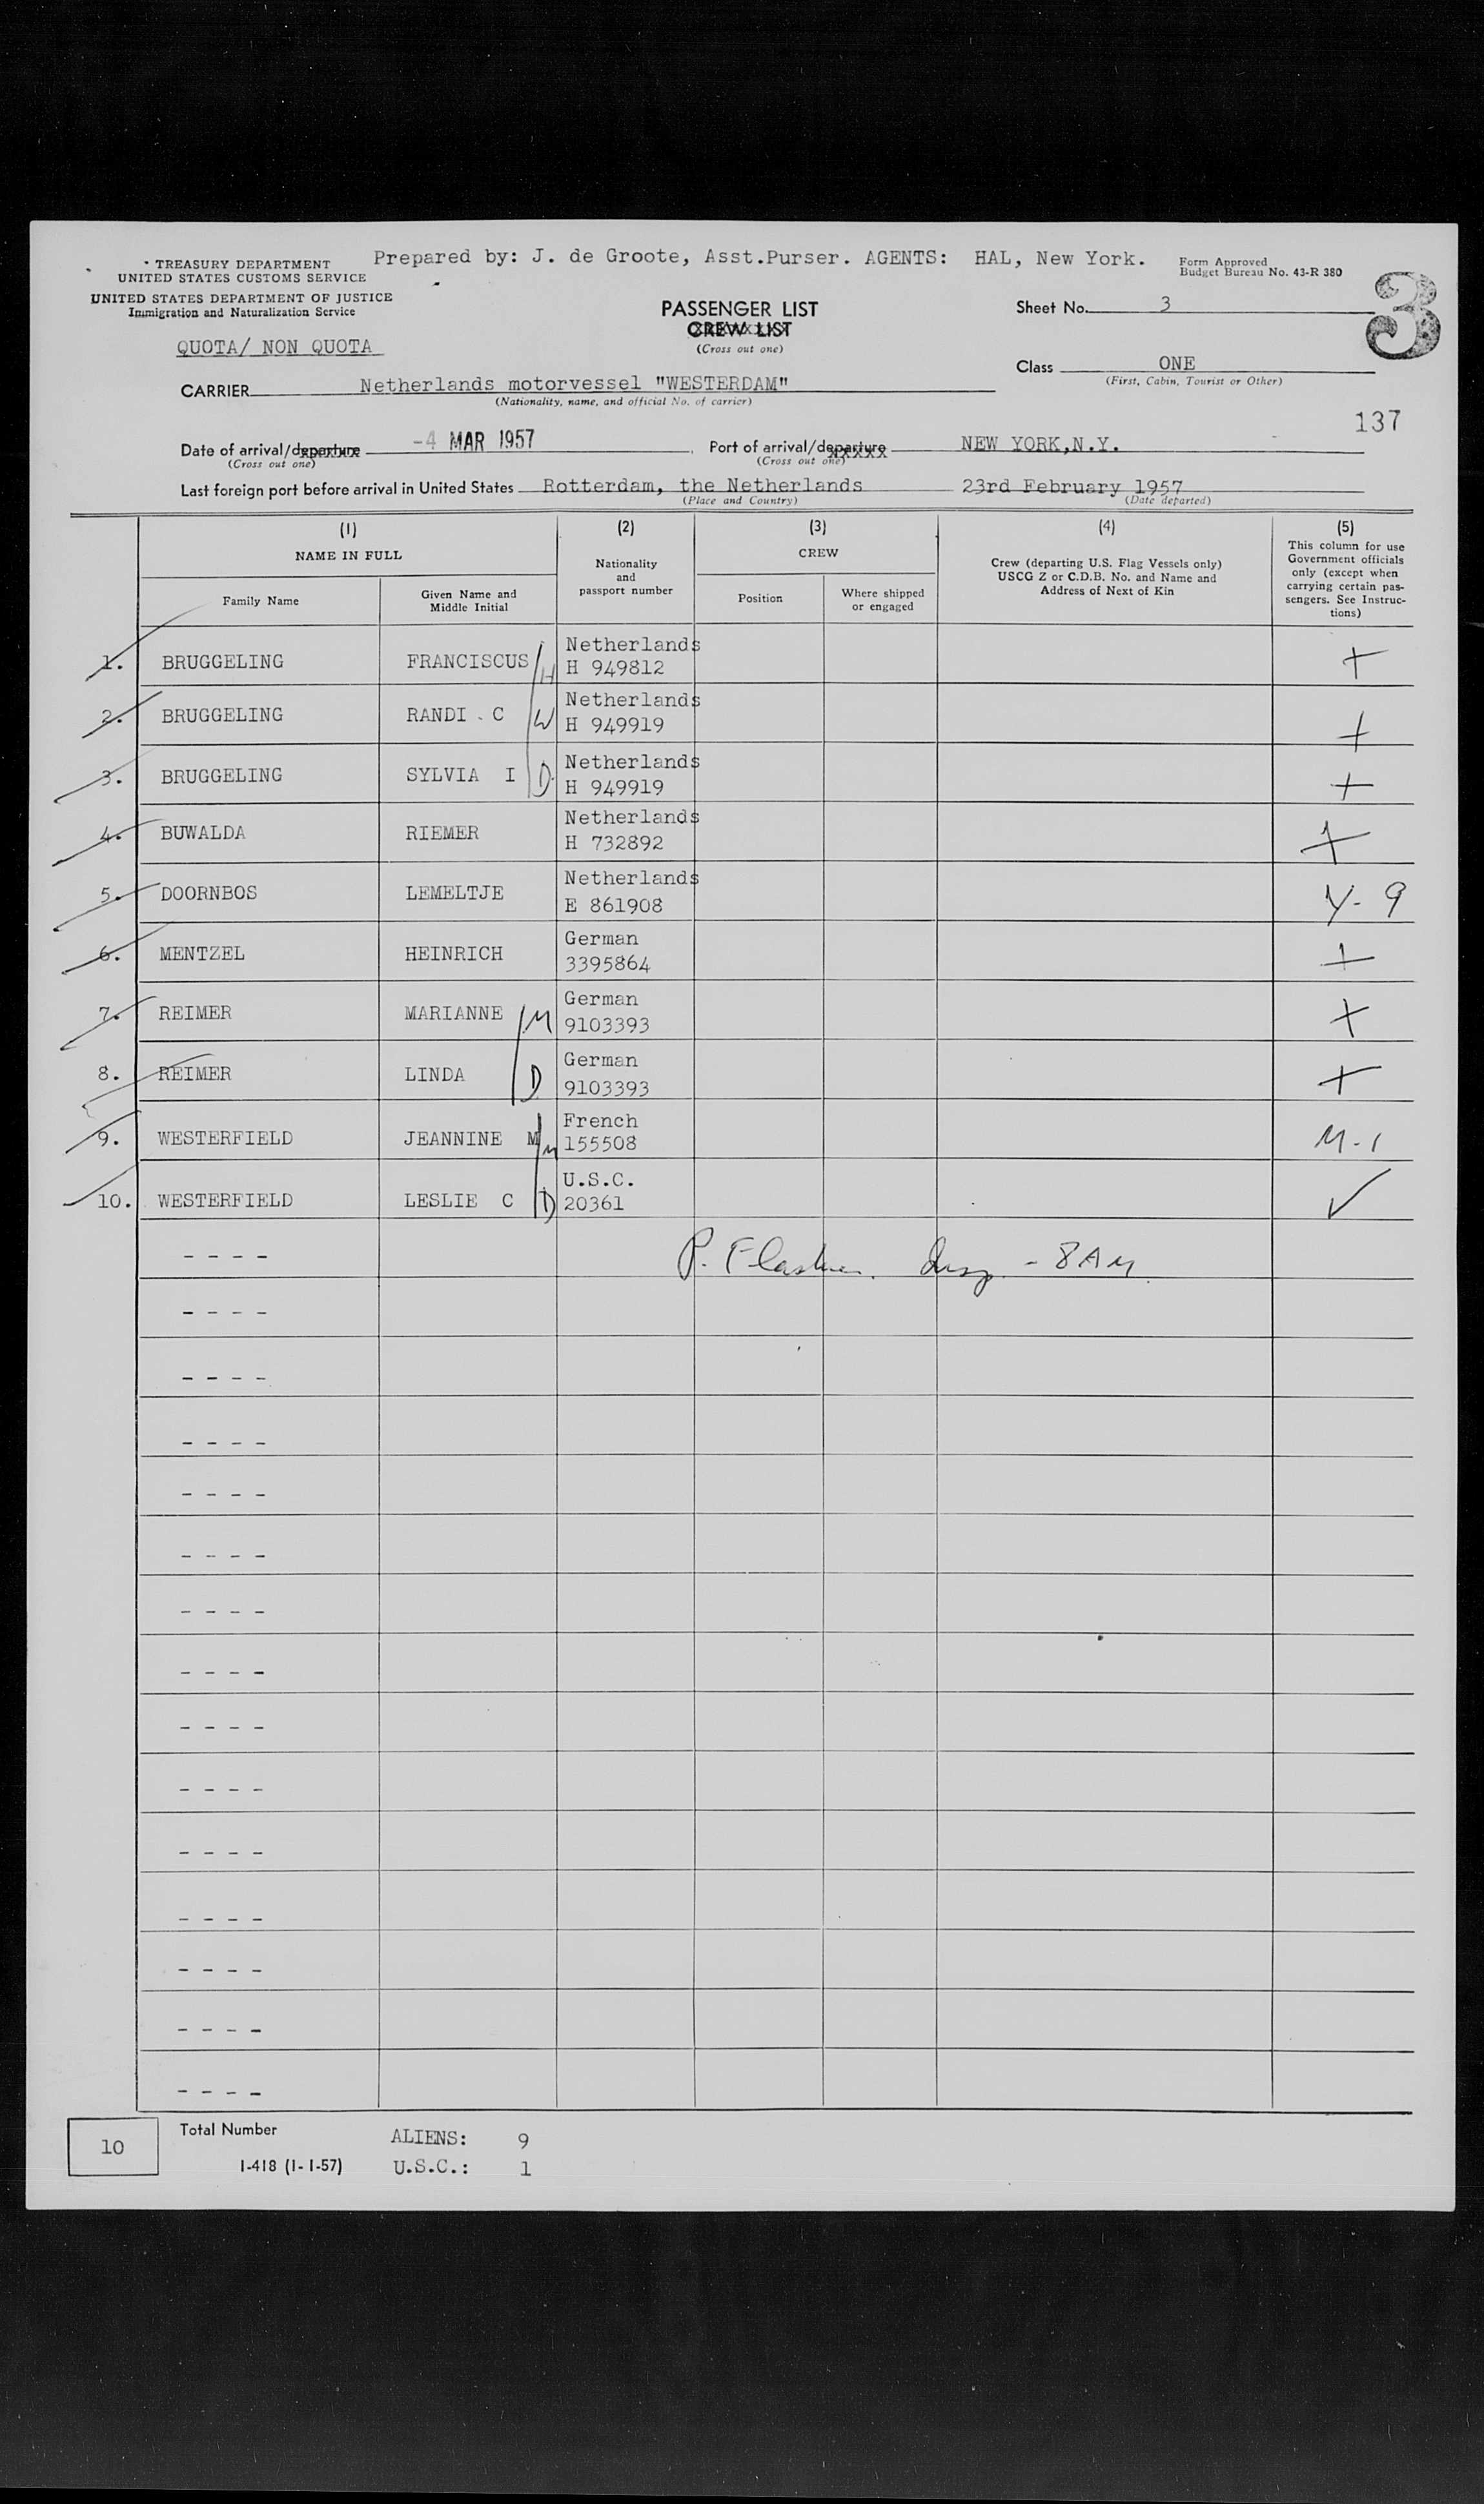 Prepared by: J. de Groote, Asst.Purser. AGENTS: HAL, New York.
TREASURY DEPARTMENT
UNITED STATES CUSTOMS SERVICE
UNITED STATES DEPARTMENT OF JUSTICE
Immigration and Naturalization Service
QUOTA/ NON QUOTA
Form Approved
Budget Bureau No. 43-R 380
PASSENGER LIST
CREW LIST
(Cross out one)
Sheet No. 3
3
Class ONE
(First, Cabin, Tourist or Other)
CARRIER Netherlands motorvessel "WESTERDAM"
(Nationality, name, and official No. of carrier)
137
Date of arrival/departure -4 MAR 1957
(Cross out one)
Port of arrival/departure NEW YORK,N.Y.
(Cross out one)
Last foreign port before arrival in United States Rotterdam, the Netherlands 23rd February 1957
(Place and Country) (Date departed)
(1)
NAME IN FULL
Family Name
Given Name and
Middle Initial
(2)
Nationality
and
passport number
(3)
CREW
Position
Where shipped
or engaged
(4)
Crew (departing U.S. Flag Vessels only)
USCG Z or C.D.B. No. and Name and
Address of Next of Kin
(5)
This column for use
Government officials
only (except when
carrying certain pas-
sengers. See Instruc-
tions)
1. BRUGGELING FRANCISCUS H Netherlands +
H 949812
2. BRUGGELING RANDI . C W Netherlands +
H 949919
3. BRUGGELING SYLVIA I D Netherlands +
H 949919
4. BUWALDA RIEMER Netherlands +
H 732892
5. DOORNBOS LEMELTJE Netherlands Y- 9
E 861908
6. MENTZEL HEINRICH German +
3395864
7. REIMER MARIANNE M German +
9103393
8. REIMER LINDA D German +
9103393
9. WESTERFIELD JEANNINE M M French M-1
155508
10. WESTERFIELD LESLIE C D U.S.C. ✓
20361
- - - - P. - 8AM
- - - -
- - - -
- - - -
- - - -
- - - -
- - - -
- - - -
- - - -
- - - -
- - - -
- - - -
- - - -
- - - -
- - - -
10 Total Number ALIENS: 9
I-418 (1-1-57) U.S.C.: 1